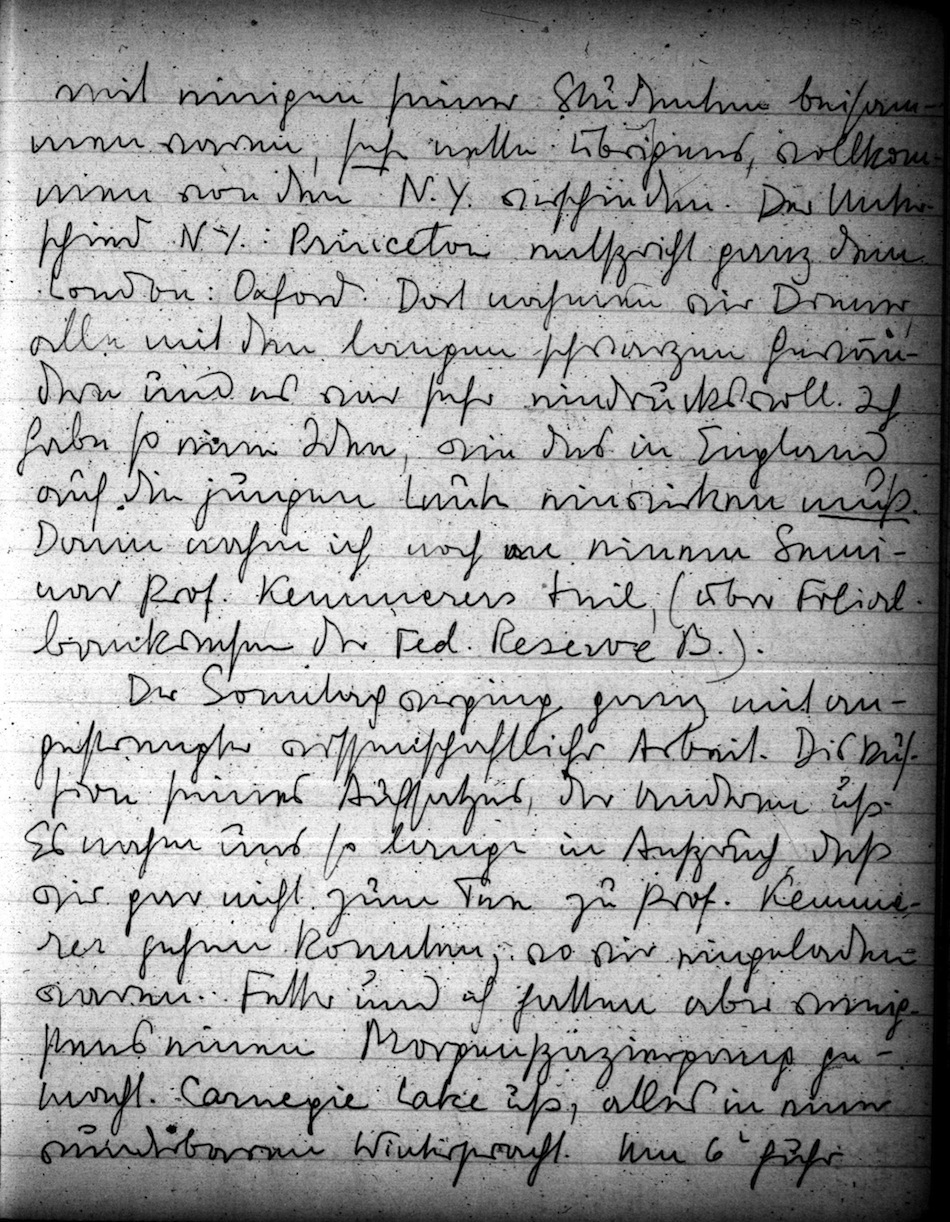 mit einigen seiner Studenten beisam-
men waren, sehr nette übrigens, vollkom-
men von den N.Y. verschieden. Der Unter-
schied N.Y. : Princeton entspricht ganz dem
London : Oxford. Dort nahmen wir Dinner,
alle mit den langen schwarzen Gewän-
dern und es war sehr eindrucksvoll. Ich
habe so eine Idee, wie das in England
auf die jungen Leute einwirken muß.
Dann nahm ich noch an einem Semi-
nar Prof. Kemmerers teil, (über Filial-
bankwesen der Fed. Reserve B.).
Der Sonntag verging ganz mit an-
gestrengter wissenschaftlicher Arbeit. Diskus-
sion seines Aufsatzes, der anderen usf.
Es nahm uns so lange in Anspruch, daß
wir gar nicht zum Tee zu Prof. Kemme-
rer gehen konnten, wo wir eingeladen
waren. Fetter und ich hatten aber wenig-
stens einen Morgenspaziergang ge-
macht. Carnegie Lake usf., alles in einer
wunderbaren Winterpracht. Um 6 fuhr